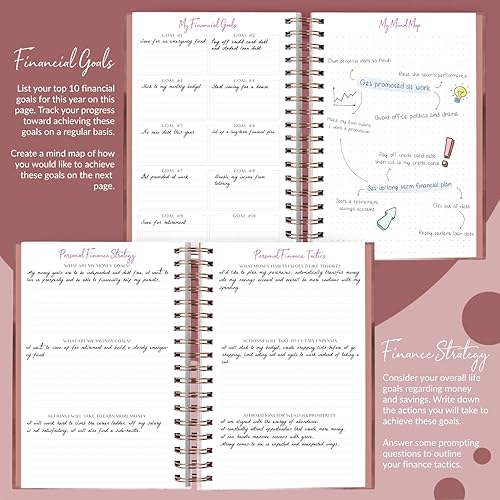 Financial Goals
List your top 10 financial
goals for this year on this
page. Track your progress
toward achieving these
goals on a regular basis.
Create a mind map of how
you would like to achieve
these goals on the next
page.
My Financial Goals
GOAL #1
Save for an emergency fund
GOAL #2
Pay off credit card debt
and student loan debt
GOAL #3
Stick to my monthly budget
GOAL #4
Start saving for a house
GOAL #5
No new debt this year
GOAL #6
Set up a long-term financial plan
GOAL #7
Get promoted at work
GOAL #8
Double my income from
tutoring
GOAL #9
Save for retirement
GOAL #10
My Mind Map
Own projects start to finish
Raise the team's performance
Get promoted at work
Make my boss aware
I want a promotion
Avoid office politics and drama
Pay off credit card debt,
then cut up my credit card
Set up long term financial plan
Start a retirement
savings account
Get out of debt
Repay student loan debt
Personal Finance Strategy
WHAT ARE MY MONEY GOALS?
My money goals are to be independent and debt free. I want to
live in prosperity and be able to financially help my parents.
WHAT ARE MY SAVINGS GOALS?
I want to save up for retirement and build a sturdy emergency
fund.
ACTIONS I WILL TAKE TO EARN MORE MONEY
I will work hard to climb the career ladder. If my salary
is not satisfactory, I will also find a side-hustle.
Personal Finance Tactics
WHAT MONEY HABITS WOULD I LIKE TO HAVE?
I'd like to plan my purchases, automatically transfer money
into my savings account and overall be more cautious with my
spending.
ACTIONS I WILL TAKE TO CUT MY EXPENSES
I will stick to my budget, create shopping lists before I go
shopping, limit eating out and cycle to work instead of taking a
cab.
AFFIRMATIONS FOR WEALTH & PROSPERITY
I am aligned with the energy of abundance.
I constantly attract opportunities that create more money.
I can handle massive success with grace.
Money comes to me in expected and unexpected ways.
Finance Strategy
Consider your overall life
goals regarding money
and savings. Write down
the actions you will take to
achieve these goals.
Answer some prompting
questions to outline
your finance tactics.